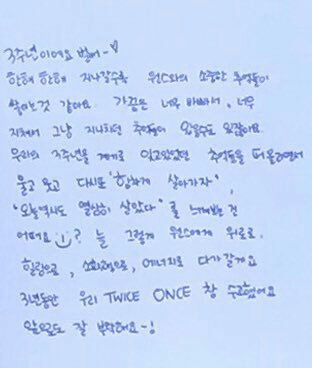 3주년이에요 벌써~♡
한해 한해 지나갈수록 원스와의 소중한 추억들이
쌓이는것 같아요. 가끔은 너무 바빠서, 너무
지쳐서 그냥 지나치던 추억들이 있을수도 있잖아요.
우리의 3주년을 계기로 잊고있었던 추억들을 떠올리면서
울고 웃고 다시또 '힘차게 살아가자',
'오늘역시도 열심히 살았다' 를 느껴보는 건
어때요 :)? 늘 그렇게 원스에게 위로로,
힐링으로, 소화제으로, 에너지로 다가갈게요
3년동안 우리 TWICE ONCE 참 수고했어요
앞으로도 잘 부탁해요~!